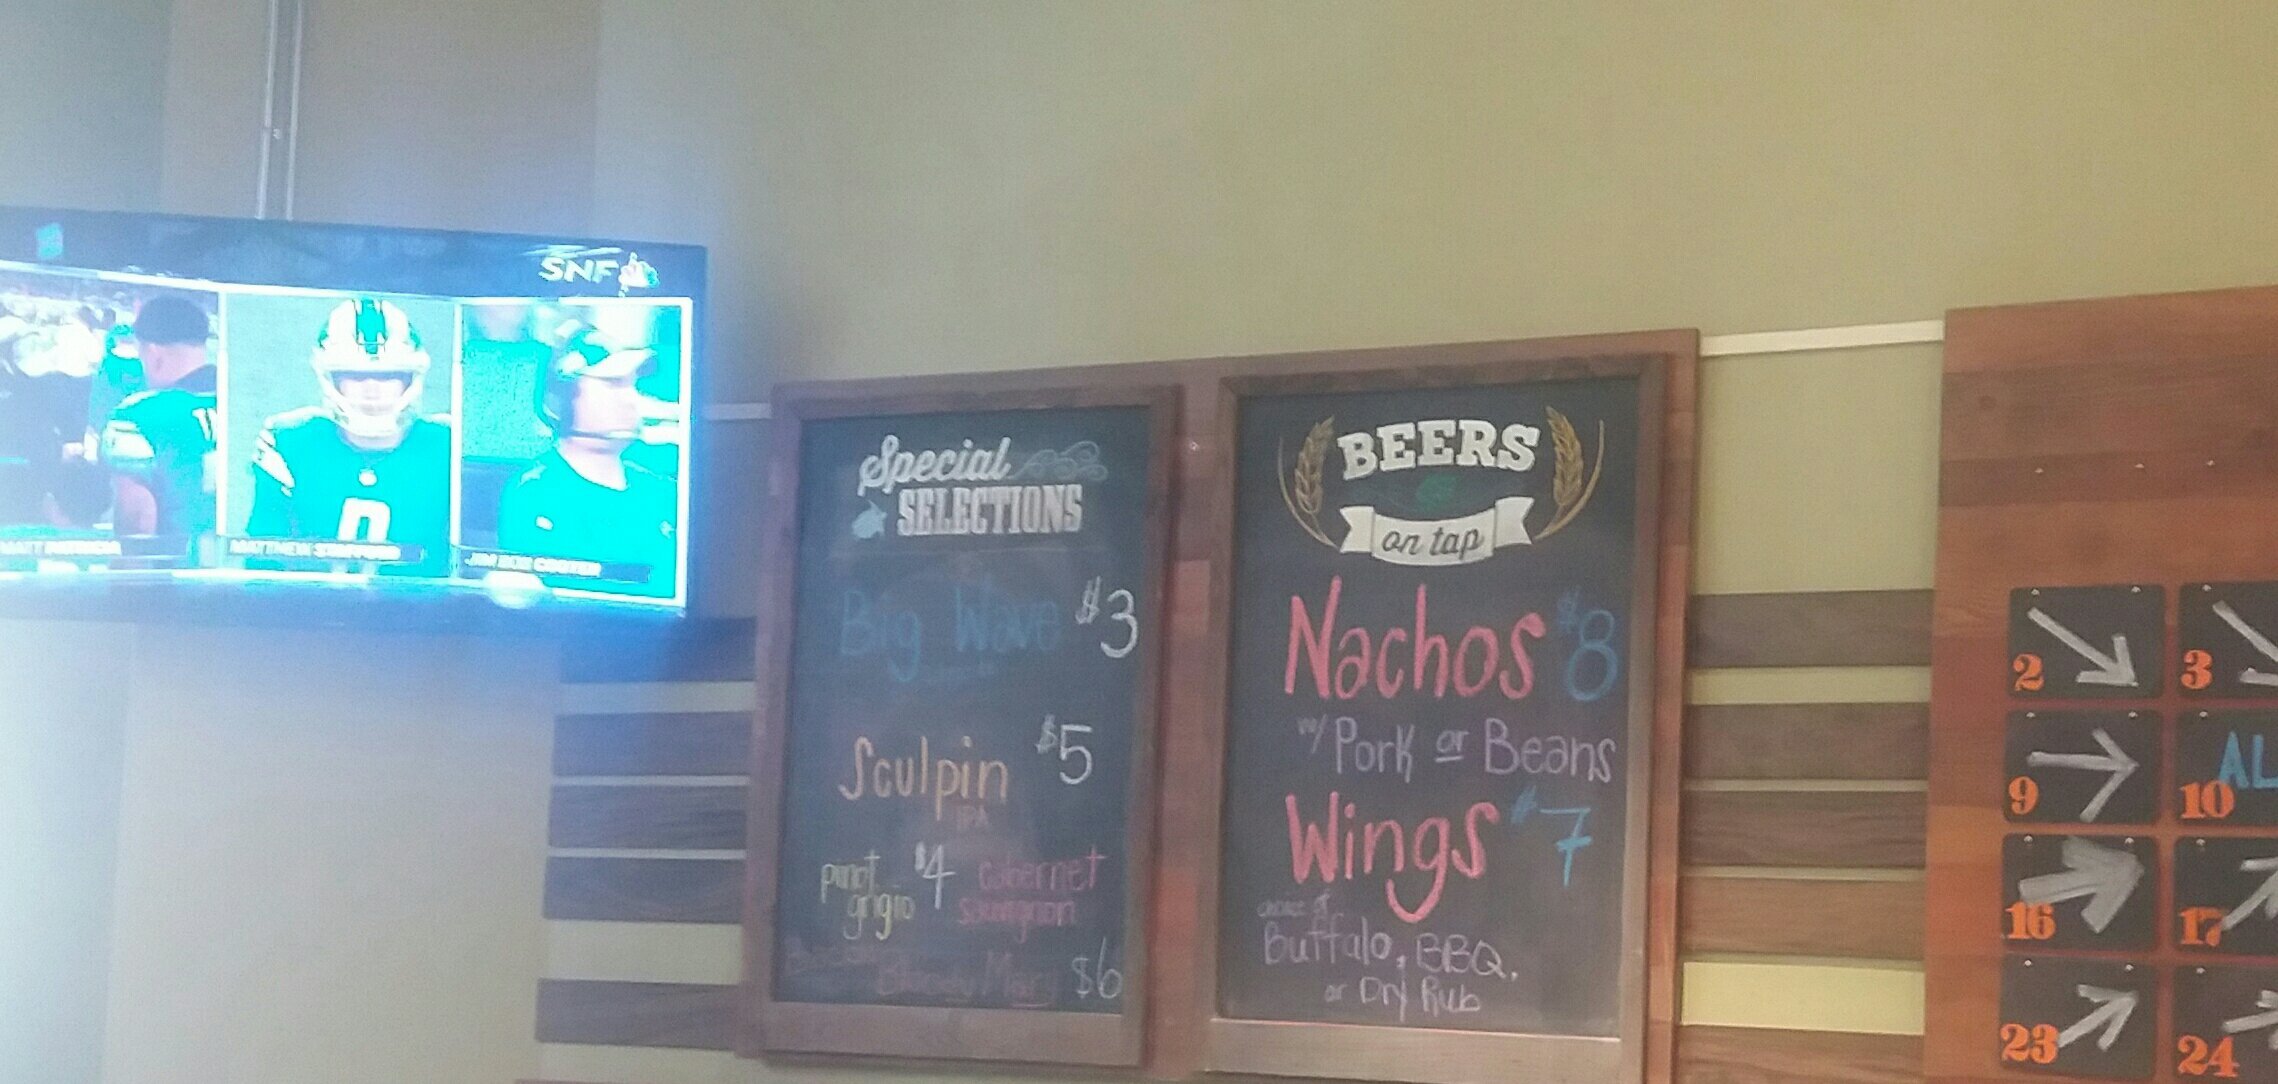 SNF
MATTHEW STAFFORD
JIM BOB COOTER
Special
SELECTIONS
Big Wave $3
Sculpin $5
IPA
pinot grigio $4 cabernet sauvignon
Bloody Mary $6
BEERS
on tap
Nachos $8
w/ Pork or Beans
Wings $7
choice of
Buffalo, BBQ,
or Dry Rub
2
3
9
10 AL
16
17
23
24